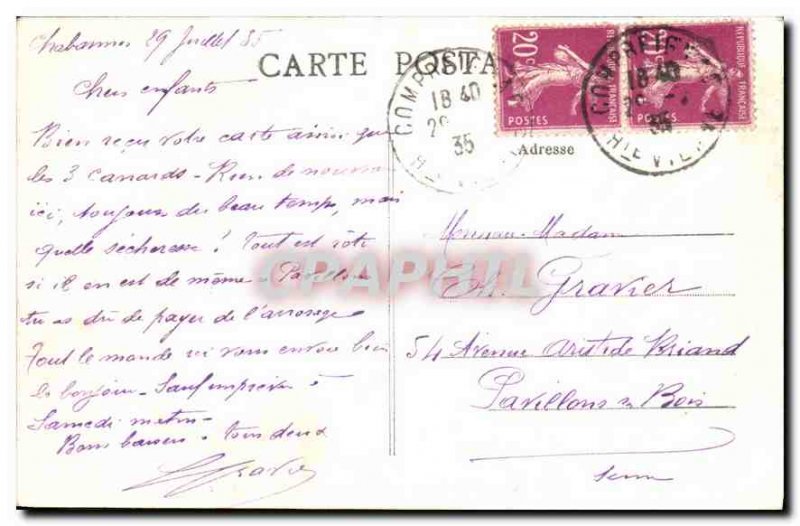 Chabannes 29 Juillet 35
Chers enfants
Bien reçu votre carte ainsi que
les 3 canards - Rien de nouveau
ici, toujours du beau temps, mais
quelle sécheresse ! Tout est rôti
si il en est de même à Pavillons
tu as dû de payer de l'arrosage
Tout le monde ici vous envoie bien
le bonjour - Sauf imprévu à
Samedi matin -
Bons baisers à tous deux
Gravier
CARTE POSTALE
COMPREIGNAC
18 40
29
35
HTE VIENNE
20c
POSTES
REPUBLIQUE FRANÇAISE
COMPREIGNAC
18 40
35
HTE VIENNE
20c
POSTES
REPUBLIQUE FRANÇAISE
Adresse
Monsieur Madame
Gravier
54 Avenue Aristide Briand
Pavillons s/ Bois
Seine
CPAPHIL